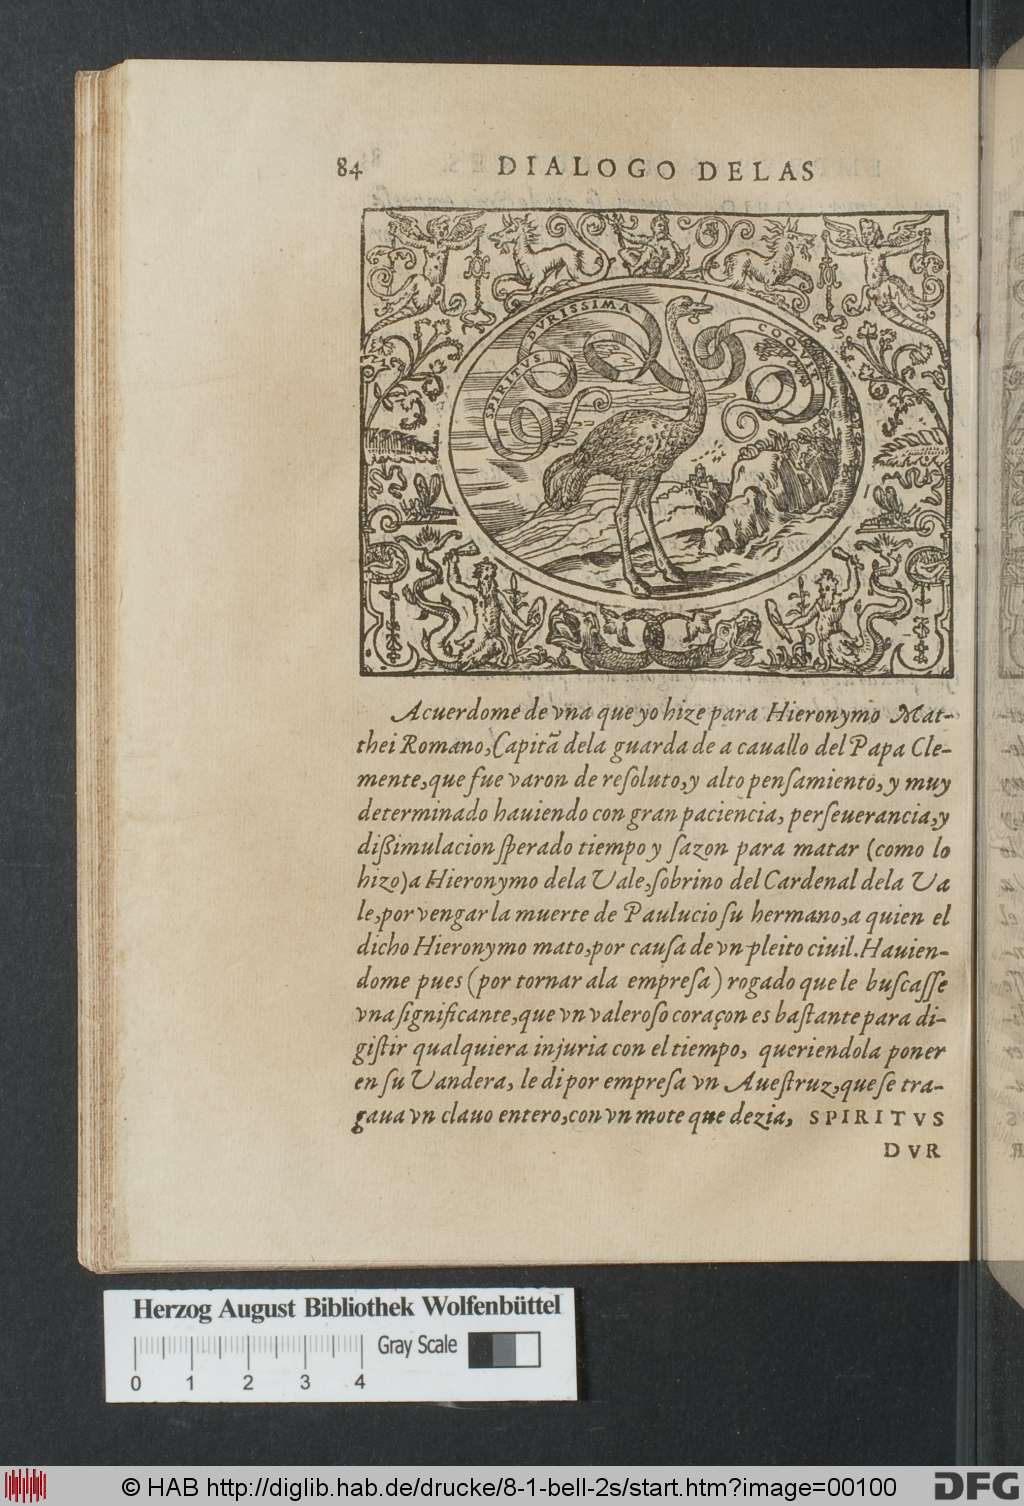 84 DIALOGO DELAS
SPIRITVS DVRISSIMA COQVIT
Acuerdome de vna que yo hize para Hieronymo Mat-
thei Romano, Capitã dela guarda de a cauallo del Papa Cle-
mente, que fue varon de resoluto, y alto pensamiento, y muy
determinado hauiendo con gran paciencia, perseuerancia, y
dißimulacion sperado tiempo y sazon para matar (como lo
hizo) a Hieronymo dela Vale, sobrino del Cardenal dela Va
le, por vengar la muerte de Paulucio su hermano, a quien el
dicho Hieronymo mato, por causa de vn pleito ciuil. Hauien-
dome pues (por tornar ala empresa) rogado que le buscasse
vna significante, que vn valeroso coraçon es bastante para di-
gistir qualquiera injuria con el tiempo, queriendola poner
en su Vandera, le di por empresa vn Auestruz, que se tra-
gaua vn clauo entero, con vn mote que dezia, SPIRITVS
DVR
Herzog August Bibliothek Wolfenbüttel
Gray Scale
0 1 2 3 4
© HAB http://diglib.hab.de/drucke/8-1-bell-2s/start.htm?image=00100
DFG